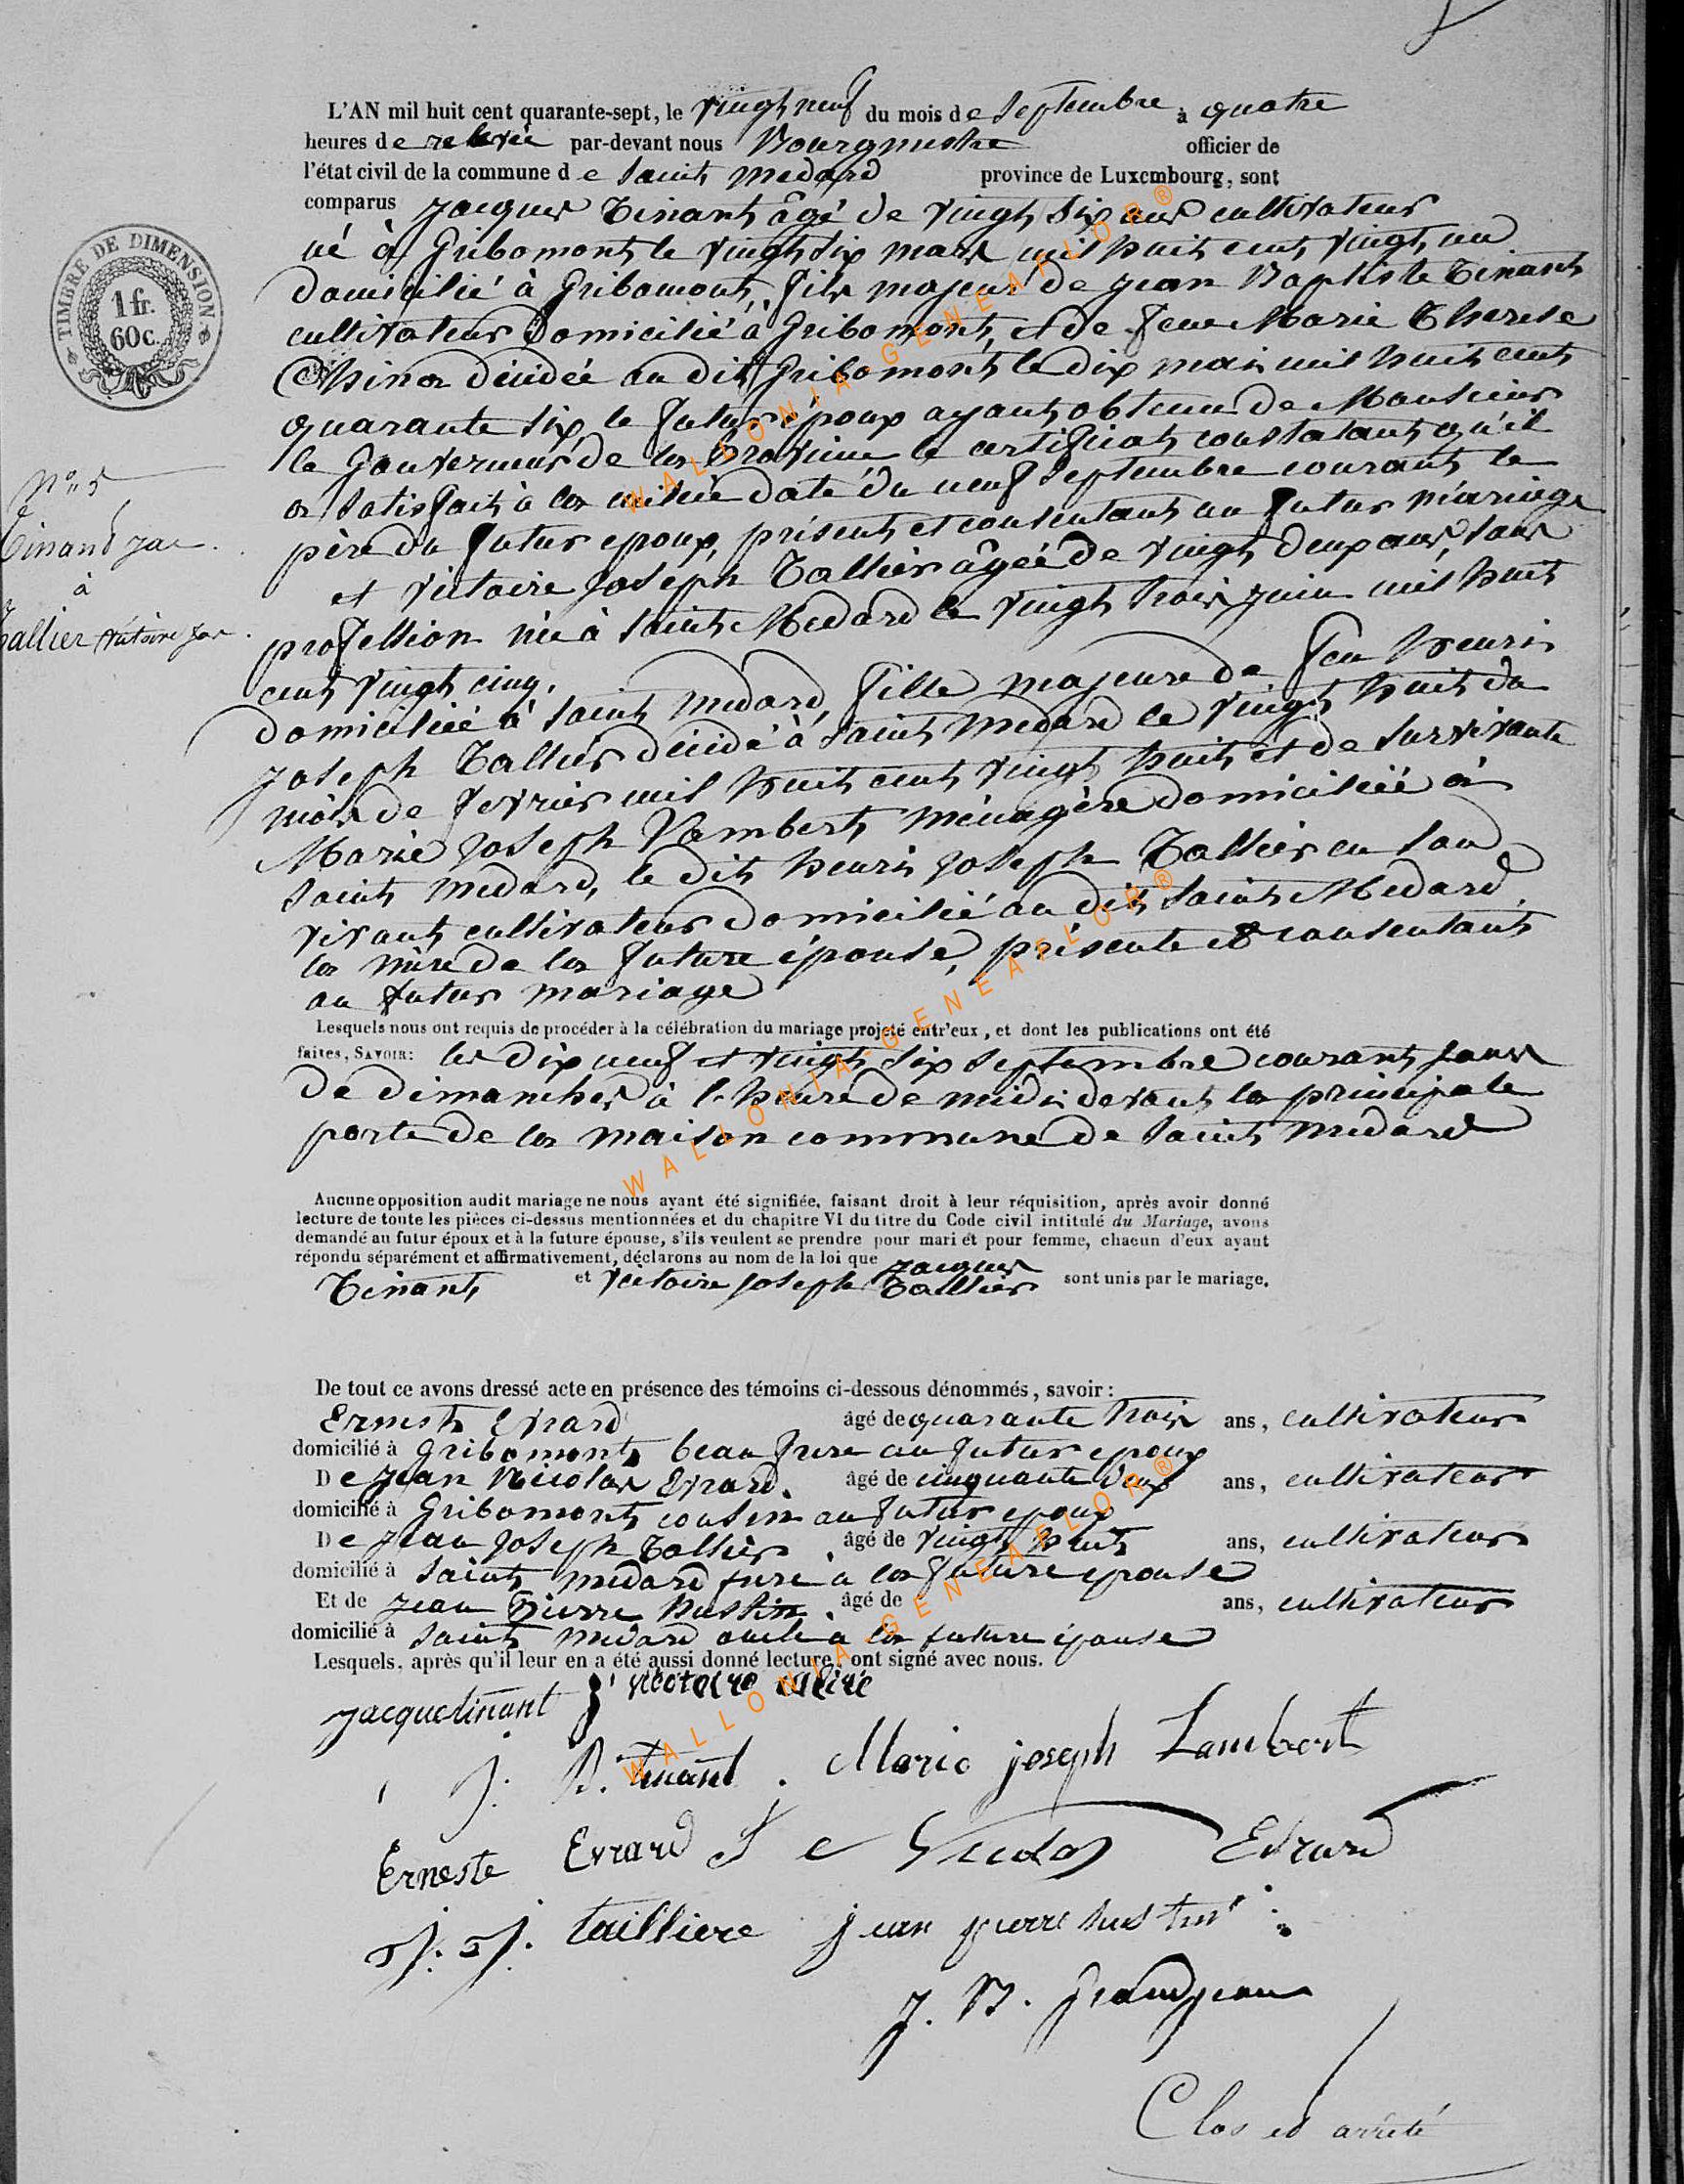 L'AN mil huit cent quarante-sept, le vingt neuf du mois de Septembre à quatre
heures de relevée par-devant nous Bourgmestre officier de
l'état civil de la commune de Saint Medard province de Luxembourg, sont
comparus Jacques Tinant âgé de vingt six ans cultivateur
né à Gribomont le vingt six mars mil huit cent vingt un
domicilié à Gribomont, fils majeur de Jean Baptiste Tinant
cultivateur domicilié à Gribomont, et de feue Marie Therese
décidée au dit Gribomont le dix mai mil huit cent
quarante six le futur époux ayant obtenu de Monsieur
le Gouverneur de la Province le certificat constatant qu'il
a satisfait à la milice daté du neuf Septembre courant le
père du futur epoux, présent et consentant au futur mariage
et Victoire Joseph Tallier âgée de vingt deux ans, sans
profession née à Saint Medard le vingt trois juin mil huit
cent vingt cinq.
domiciliée à Saint Medard, fille majeure de feu Henri
Joseph Tallier décidé à Saint Medard le vingt huit du
mois de fevrier mil huit cent vingt huit et de survivante
Marie Joseph Lambert ménagère domiciliée à
Saint Medard, le dit Henri Joseph Tallier en son
vivant cultivateur domicilié au dit Saint Medard,
la mère de la future épouse, présente et consentant
au futur mariage
Lesquels nous ont requis de procéder à la célébration du mariage projeté entr'eux, et dont les publications ont été
faites, SAVOIR: les dix neuf et vingt six septembre courant jours
de dimanches à l'heure de midi devant la principale
porte de la maison commune de Saint Medard
Aucune opposition audit mariage ne nous ayant été signifiée, faisant droit à leur réquisition, après avoir donné
lecture de toute les pièces ci-dessus mentionnées et du chapitre VI du titre du Code civil intitulé du Mariage, avons
demandé au futur époux et à la future épouse, s'ils veulent se prendre pour mari et pour femme, chacun d'eux ayant
répondu séparément et affirmativement, déclarons au nom de la loi que Jacques
Tinant et Victoire Joseph Tallier sont unis par le mariage.
De tout ce avons dressé acte en présence des témoins ci-dessous dénommés, savoir:
Ernest Evrard âgé de quarante trois ans, cultivateur
domicilié à Gribomont beau frere au futur epoux
De Jean Nicolas Evrard. âgé de cinquante deux ans, cultivateur
domicilié à Gribomont cousin au futur epoux
De Jean Joseph Tallier. âgé de vingt huit ans, cultivateur
domicilié à Saint Medard frere à la future epouse
Et de Jean Pierre Hustin. âgé de ans, cultivateur
domicilié à Saint Medard oncle à la future épouse
Lesquels, après qu'il leur en a été aussi donné lecture, ont signé avec nous.
Jacque tinant victoire
J. B. tinant. Marie joseph Lambert
Erneste Evrard Evrard
J. J. tailliere jean pierre hustin
J. B. Grandjean
Clos et arrêté
TIMBRE DE DIMENSION
1 fr.
60 c.
No. 5
Tinand Jac.
à
Tallier Victoire Jos.
WALLONIA-GENEAFLOR®
WALLONIA-GENEAFLOR®
WALLONIA-GENEAFLOR®